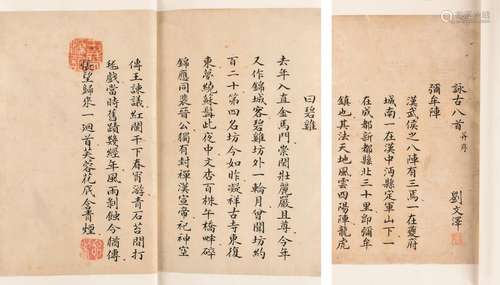 詠古八首 并序
劉文澤
彌牟陣
漢武侯之八陣有三焉一在夔府
城南一在漢中沔縣定軍山下一
在成都新都縣北三十里即彌牟
鎮也其法天地風雲四陽陳龍虎
曰碧雞
去年入直金馬門崇閎壯麗嚴且尊今年
又作錦城客碧雞坊外一輪月曾聞坊約
百二十第四名坊今如昨凝祥古寺東復
東夢繞蘇髯此夜中文杏百株午橋畔碎
錦應同裴晉公獨有封禪漢宣帝祀神空
傳王諫議紅闌干下春宵游青石苔間打
毬戲當時舊蹟幾經年風雨剝蝕今猶傳
悵望歸來一迴首芙蓉花底含青煙